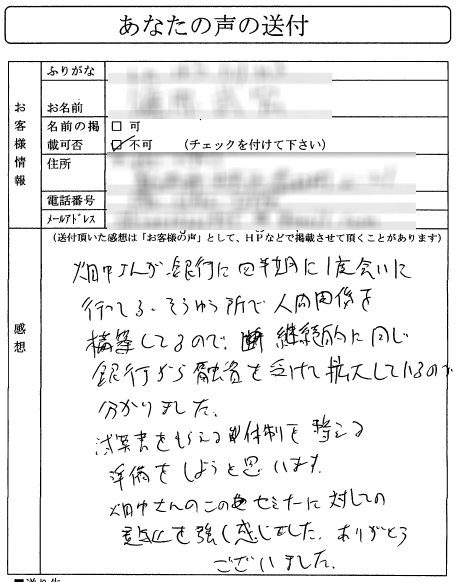 あなたの声の送付
お客様情報
ふりがな
お名前
名前の掲載可否
□ 可
☑ 不可 (チェックを付けて下さい)
住所
電話番号
メールアドレス
感想
(送付頂いた感想は「お客様の声」として、HPなどで掲載させて頂くことがあります)
畑中さんが銀行に四半期に1度会いに
行ってる。そうゆう所で人間関係を
構築してるので、継続的に同じ
銀行から融資を受けて拡大しているので
分かりました。
を もらえる 体制を整える
準備をしようと思います。
畑中さんのこの セミナーに対しての
を強く感じました。ありがとう
ございました。